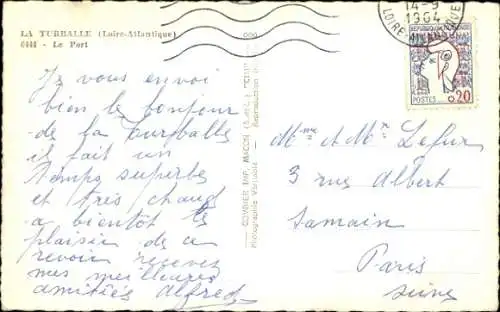 LA TURBALLE (Loire-Atlantique)
- Le Port
Je vous envoi
bien le bonjour
de la Turballe
il fait un
temps superbe
et très chaud
a bientot le
plaisir de ce
revoir recevez
mes meilleures
amitiés Alfred
COMBIER IMP. MACON
14-9
1964
LOIRE-ATLANTIQUE
REPUBLIQUE FRANÇAISE
POSTES
0,20
Mme et Mr Lefur
3 rue Albert
Samain
Paris
Seine